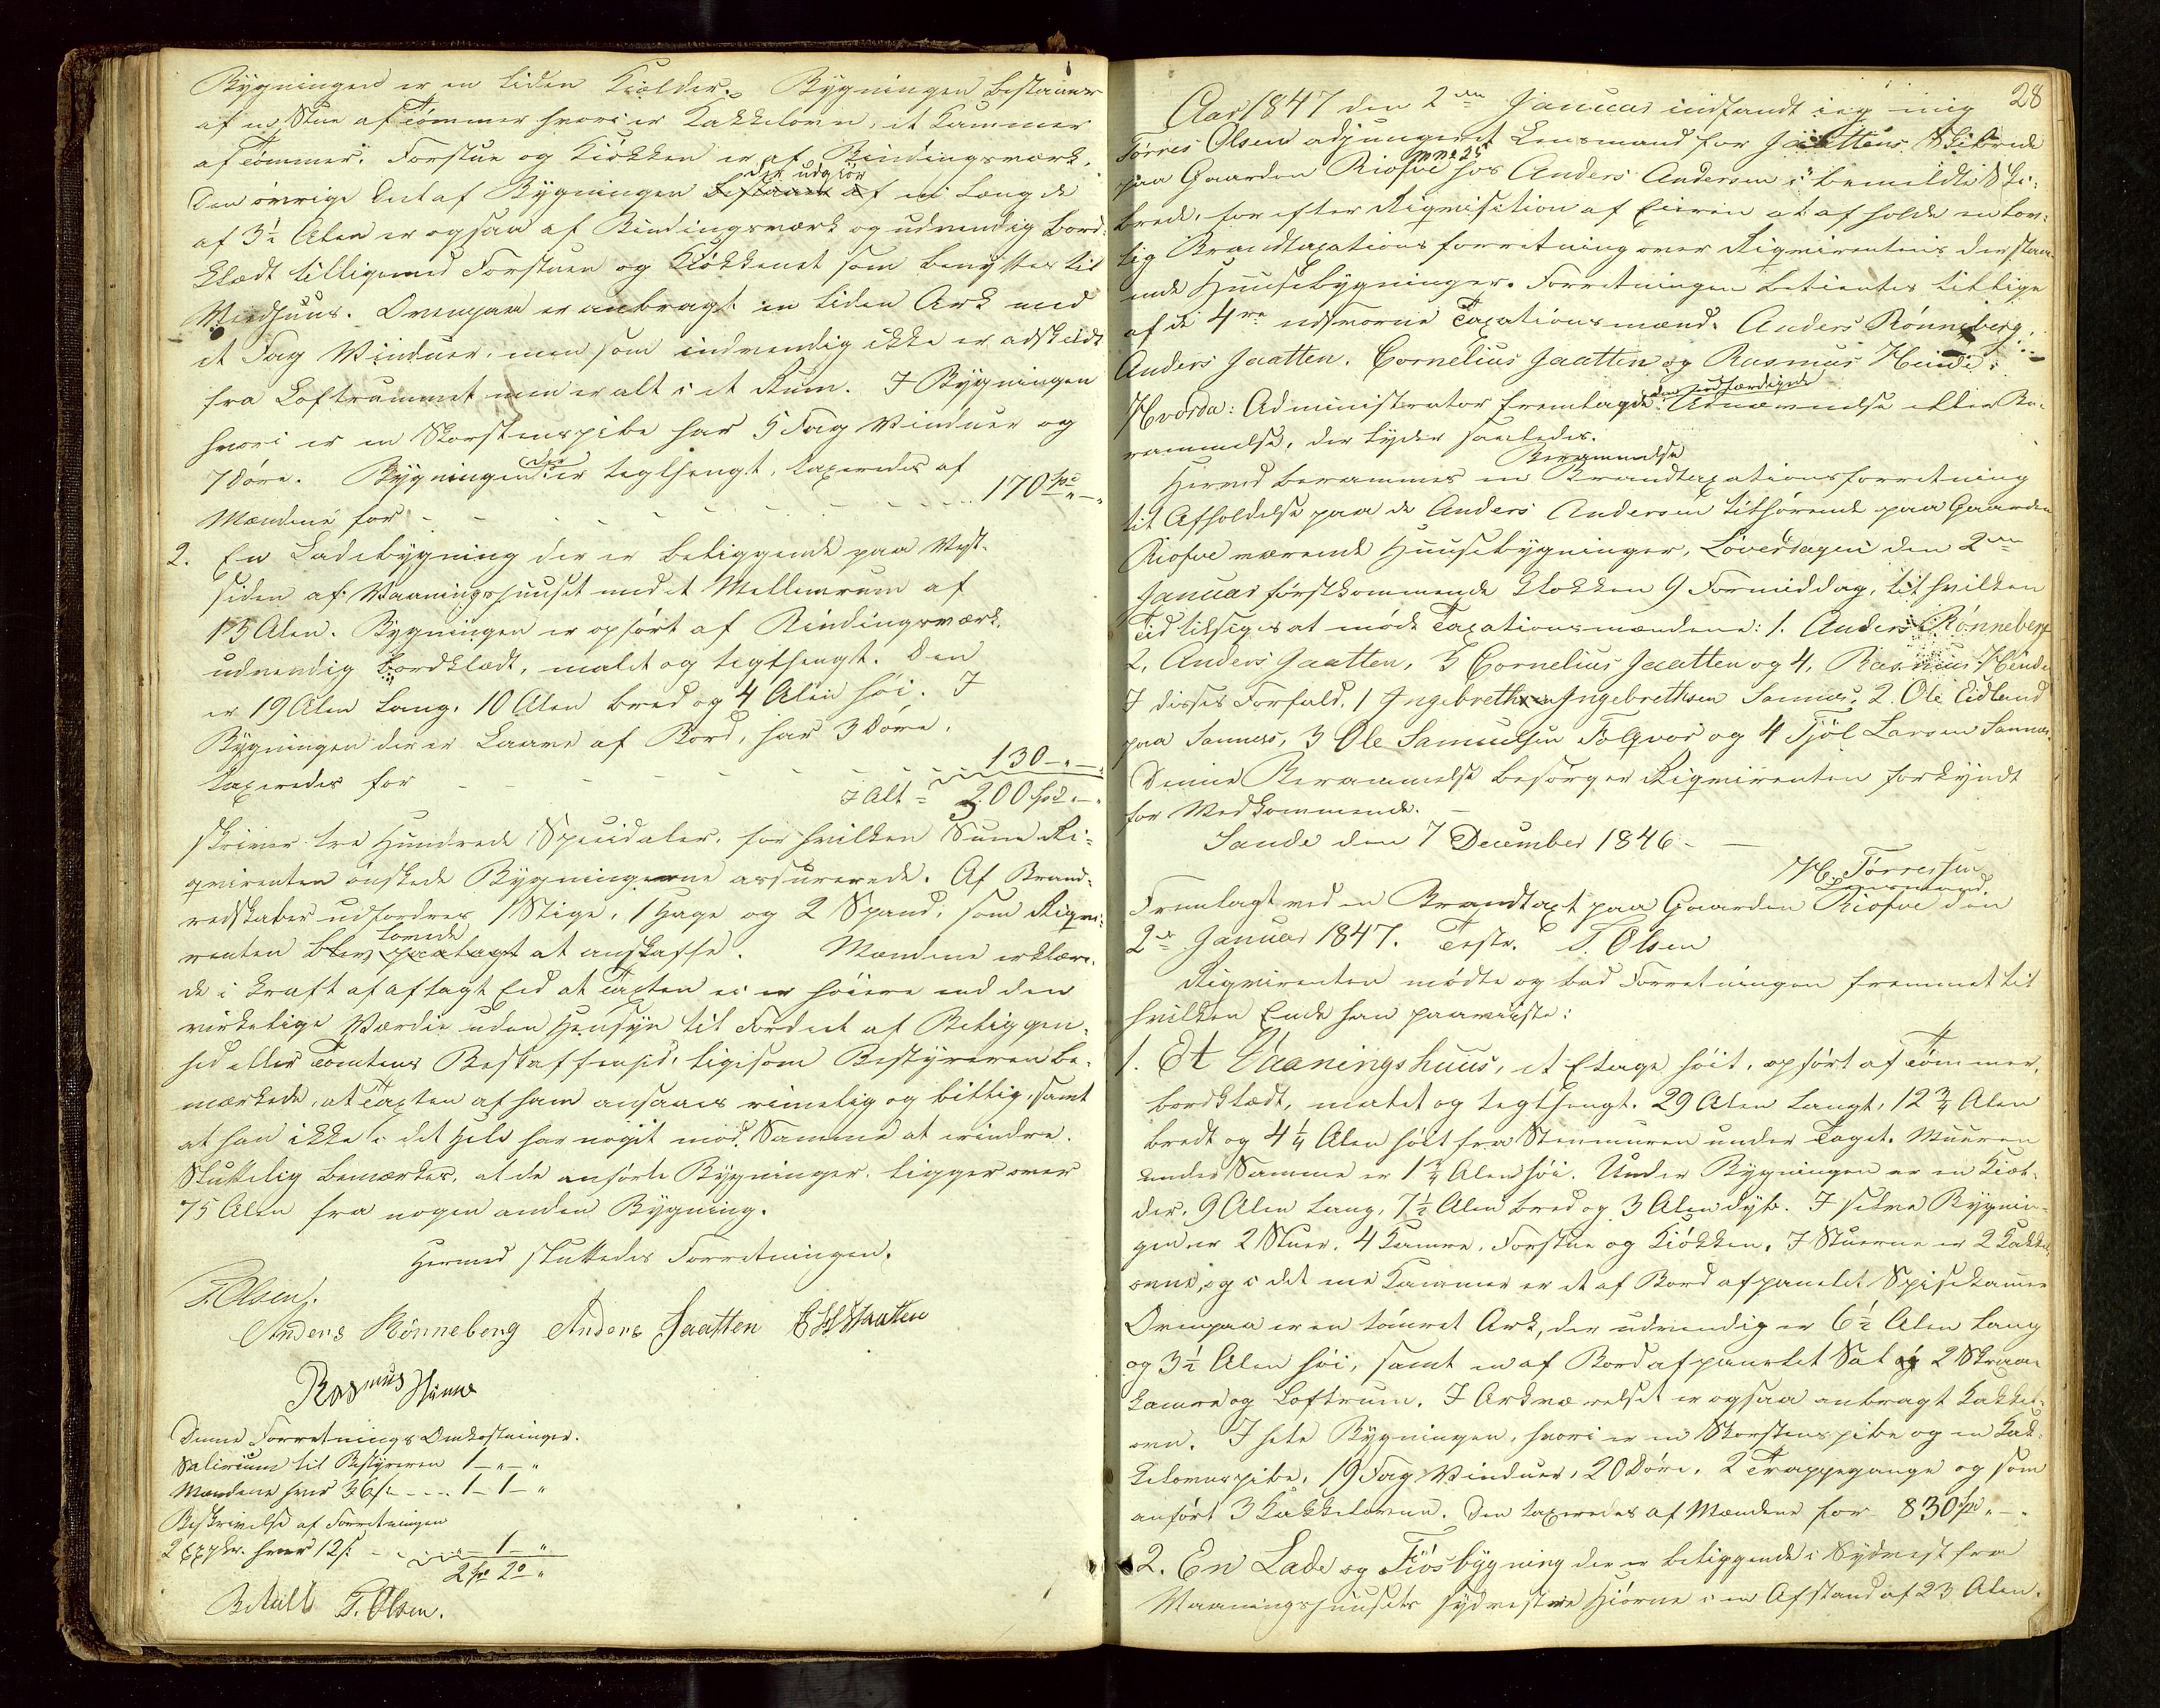 Bygningen er en liden Kielder. Bygningen bestaaer
af en Stue af Tømmer hvori er Kakkelovn, et Kammer
af Tømmer. Forstue og Kiøkken er af Bindingsværk.
det udgiør
Den øvrige Deel af Bygningen bestaaer af en Længde
af 3½ Alen er ogsaa af Bindingsværk og udvendig bord-
klædt tilligemed Forstuen og Kiøkkenet som benyttes til
Vedhuus. Ovenpaa er anbragt en liden Ark med
et Fag Vinduer, men som indvendig ikke er adskildt
fra Loftrummet men er alt i et Rum. I Bygningen
hvori er en Skorstenspibe har 5 Fag Vinduer og
7 Døre. Bygningen der er teglhengt, taxeredes af
Mændene for - - - - - - - - 170 Spd " - "
2. En Ladebygning der er beliggende paa Vest-
siden af Vaaningshuuset med et Mellemrum af
15 Alen. Bygningen er opført af Bindingsværk,
udvendig bordklædt, malet og teglhengt. Den
er 19 Alen lang, 10 Alen bred og 4 Alen høi. I
Bygningen der er Laave af Bord, har 3 Døre,
taxeredes for - - - - - - - 130 - " - "
I Alt = 300 Spd " - "
skriver tre Hundrede Speciedaler, for hvilken Sum Re-
qvirenten ønskede Bygningerne assurerede. Af Brand-
redskaber udfordres 1 Stige, 1 Hage og 2 Spand, som Reqvi-
lovede
renten blev paalagt at anskaffe. Mændene erklære-
de i Kraft af aflagt Eed at Taxten ei er høiere end den
virkelige Værdie uden Hensyn til Fordeel af Beliggen-
hed eller Tomtens Beskaffenhed, ligesom Bestyreren be-
mærkede, at Taxten af ham ansaaes rimelig og billig, samt
at han ikke i det Hele har noget mod Samme at erindre.
Sluttelig bemærkes, at de anførte Bygninger ligger over
75 Alen fra nogen anden Bygning.
Hermed sluttedes Forretningen.
T. Olsen.
Anders Rønneberg Anders Jaatten
Rasmus Hinne
Denne Forretnings Omkostninger.
Salirium til Bestyreren 1 - " - "
Mændene hver 36 s. - - - - 1 - 1 - "
Beskrivelse af Forretningen
2 Expl. hver 12 s. - - - " - 1 - "
2 Spd 2 o "
Betalt T. Olsen.
28
Aar 1847 den 2den Januar indfandt jeg mig
Tørres Olsen adjungeret Lensmand for Jaattens Skibrede
paa Gaarden Riofve Mno 25 hos Anders Andersen i bemeldte Ski-
brede, for efter Reqvisition af Eieren at afholde en lov-
lig Brandtaxationsforretning over Reqvirentens derstaa-
ende Huusebygninger. Forretningen betientes tillige
af de 4re udsvorne Taxationsmænd: Anders Rønneberg,
Anders Jaatten, Cornelius Jaatten og Rasmus Heinde;
den udfærdigede
Hvorda: Administrator fremlagde Udnævnelse eller Be-
rammelse, der lyder saaledes.
Berammelse
Herved berammes en Brandtaxationsforretning
til Afholdelse paa de Anders Andersen tilhørende paa Gaarden
Riofve værende Huusebygninger, Løverdagen den 2den
Januar førstkommende Klokken 9 Formiddag, til hvilken
Tid tilsiges at møde Taxationsmændene: 1. Anders Rønneberg
2, Anders Jaatten, 3 Cornelius Jaatten og 4, Rasmus Heinde
I disses Forfald, 1 Ingebreth Ingebrethsen Sannes, 2. Ole Eidland
paa Sannes, 3 Ole Samuelsen Folqvor og 4 Tjøl Larsen Sannes.
Denne Berammelse besørger Reqvirenten forkyndt
for Vedkommende. -
Sande den 7 December 1846. -
H. Tørressen
Lensmand.
Fremlagt ved en Brandtaxt paa Gaarden Riofve den
2de Januar 1847. Test. T. Olsen
Reqvirenten mødte og bad Forretningen fremmet til
hvilken Ende han paaviiste:
1. Et Vaaningshuus, et Etage høit, opført af Tømmer,
bordklædt, malet og teglhengt. 29 Alen langt, 12¾ Alen
bredt og 4¼ Alen høit fra Steenmuren under Taget. Muuren
under Samme er 1¾ Alen høi. Under Bygningen er en Kiel-
der, 9 Alen lang, 7½ Alen bred og 3 Alen dyb. I selve Bygnin-
gen er 2 Stuer, 4 Kamre, Forstue og Kiøkken. I Stuerne er 2 Kakkel-
ovne, og i det ene Kammer er et af Bord afpanelet Spisekamer
Ovenpaa er en tømret Ark, der udvendig er 6½ Alen lang
og 3½ Alen høi, samt en af Bord afpanelet Sal og 2 Skraa-
kamre og Loftrum. I Arkværelset er ogsaa anbragt Kakkel-
ovn. I hele Bygningen, hvori er en Skorstenspibe og en Kak-
kelovnspibe, 19 Fag Vinduer, 20 Døre, 2 Trappegange og som
anført 3 Kakkelovne. Den taxeredes af Mændene for 830 Spd " - "
2. En Lade og Fiøsbygning der er beliggende i Sydvest fra
Vaaningshuusets sydvestre Hiørne i en Afstand af 23 Alen.